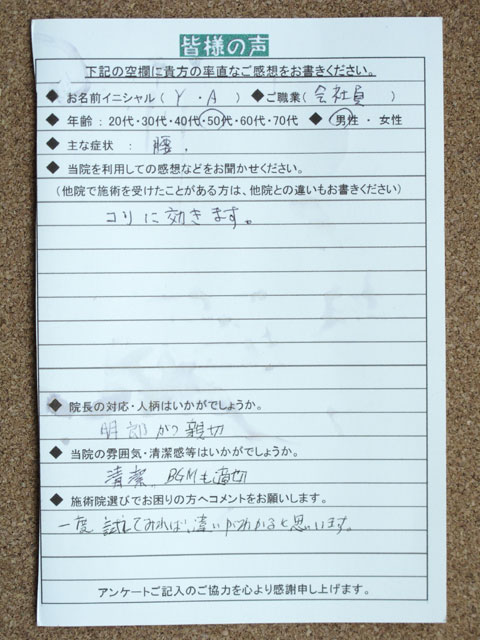 皆様の声
下記の空欄に貴方の率直なご感想をお書きください。
◆ お名前イニシャル ( Y ・ A ) ◆ご職業 ( 会社員 )
◆ 年齢 : 20代・30代・40代・50代・60代・70代 ◆ 男性 ・ 女性
◆ 主な症状 : 腰.
◆ 当院を利用しての感想などをお聞かせください。
(他院で施術を受けたことがある方は、他院との違いもお書きください)
コリに効きます。
◆ 院長の対応・人柄はいかがでしょうか。
明朗かつ親切
◆ 当院の雰囲気・清潔感等はいかがでしょうか。
清潔、BGMも適切
◆ 施術院選びでお困りの方へコメントをお願いします。
一度試してみれば、違いがわかると思います。
アンケートご記入のご協力を心より感謝申し上げます。